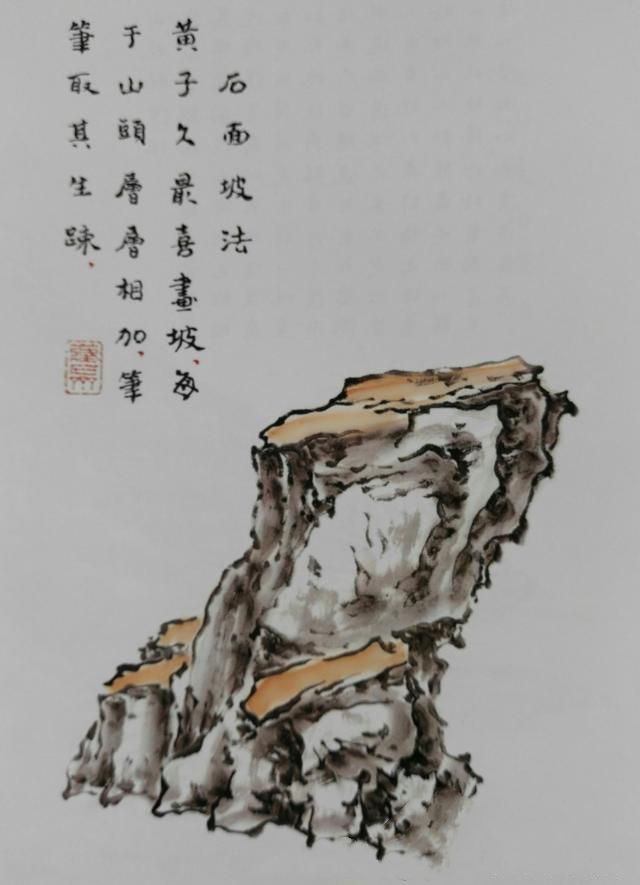 石面坡法
黃子久最喜畫坡、每
于山頭層層相加、筆
筆取其生踈、